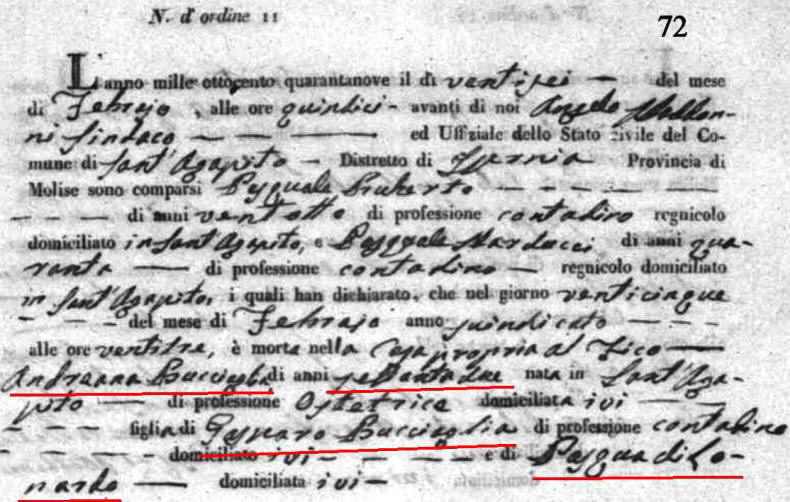 N. d'ordine 11
72
L'anno mille ottocento quarantanove il dì ventisei — del mese
di Febrajo, alle ore quindici - avanti di noi Angelo
ni Sindaco — — — ed Uffiziale dello Stato civile del Co-
mune di Sant'Agapito — Distretto di Isernia Provincia di
Molise sono comparsi Pasquale — — — — —
— — — di anni ventotto di professione contadino regnicolo
domiciliato in Sant'Agapito, e Pasquale Narducci di anni qua-
ranta — di professione contadino — regnicolo domiciliato
in Sant'Agapito, i quali han dichiarato, che nel giorno venticinque
— — — del mese di Febrajo anno sudicato — — —
alle ore ventitre, è morta nella casa propria al Vico —
Andreana Bucciglia di anni settantadue nata in Sant'Aga-
pito — di professione Ostetrice domiciliata ivi —
— — — figlia di Gesparo Bucciaglia di professione contadino
— — — — domiciliato ivi — — — — e di Pasqua di Lo-
nardo — domiciliata ivi —